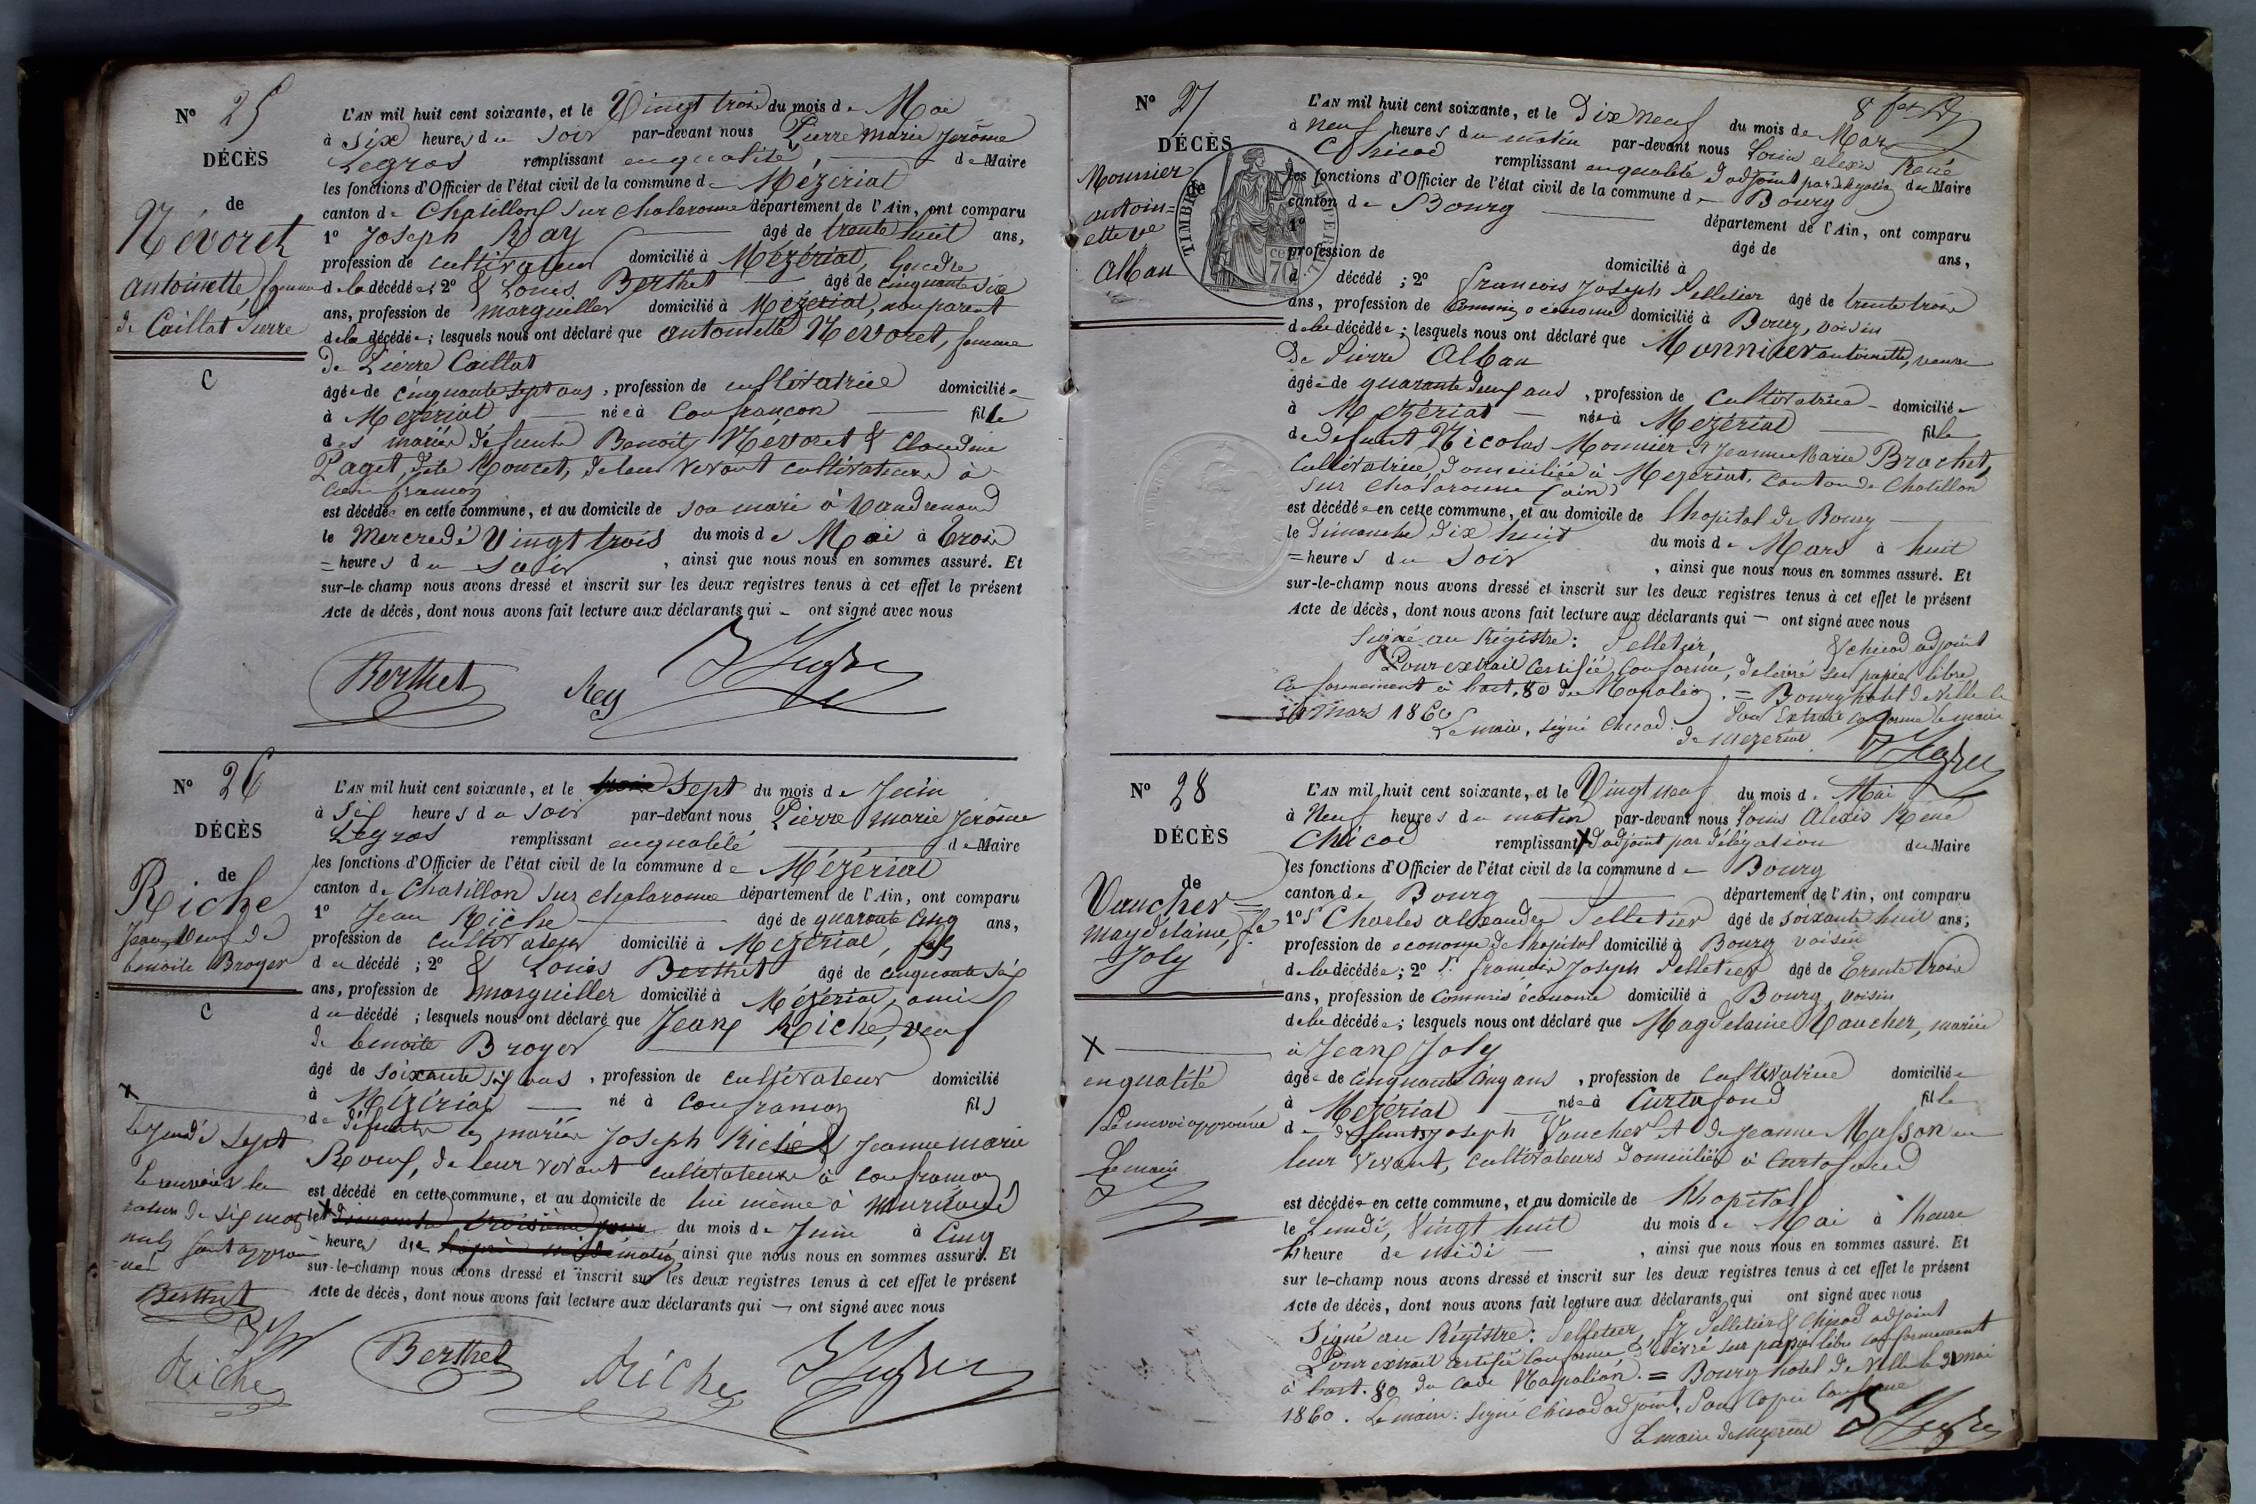 N° 25
DÉCÈS
de
Névoret
antoinette, femme
de Caillat Pierre
C
L'AN mil huit cent soixante, et le Vingt trois du mois de Mai
à six heures du soir par-devant nous Pierre marie jerôme
Legros remplissant en qualité de Maire
les fonctions d'Officier de l'état civil de la commune de Mézériat
canton de Chatillon sur chalaronne département de l'Ain, ont comparu
1° Joseph Ray âgé de trente huit ans,
profession de cultivateur domicilié à Mézériat, gendre
de la décédée; 2° & Louis Berthet âgé de cinquante six
ans, profession de marguiller domicilié à Mézériat, non parent
de la décédée; lesquels nous ont déclaré que antoinette Névoret, femme
de Pierre Caillat
âgée de cinquante sept ans, profession de cultivatrice domiciliée
à Mézériat née à Confrançon fille
des mariés défunts Benoit Névoret & Claudine
Paget, dite Moucet, de leur vivant cultivateurs à
Confrançon
est décédée en cette commune, et au domicile de son mari à Vandrenand
le Mercredi Vingt trois du mois de Mai à trois
heures du soir, ainsi que nous nous en sommes assuré. Et
sur-le-champ nous avons dressé et inscrit sur les deux registres tenus à cet effet le présent
Acte de décès, dont nous avons fait lecture aux déclarants qui ont signé avec nous
Berthet Rey Legros
N° 26
DÉCÈS
de
Riche
Jean, Veuf de
benoite Broyer
C
X
le jeudi sept
le renvoi & la
rature de six mots
nuls sont approu-
vés
Berthet
Riche
L'AN mil huit cent soixante, et le trois sept du mois de Juin
à six heures du soir par-devant nous Pierre marie jerôme
Legros remplissant en qualité de Maire
les fonctions d'Officier de l'état civil de la commune de Mézériat
canton de Chatillon sur chalaronne département de l'Ain, ont comparu
1° Jean Riche âgé de quarante cinq ans,
profession de cultivateur domicilié à Mézériat, fils
du décédé; 2° & Louis Berthet âgé de cinquante six
ans, profession de marguiller domicilié à Mézériat, ami
du décédé; lesquels nous ont déclaré que Jean Riche, veuf
de benoite Broyer
âgé de soixante six ans, profession de cultivateur domicilié
à Mézériat né à Confrançon fils
de défunts les mariés Joseph Riche & Jeanne marie
Roeuf, de leur vivant cultivateurs à Confrançon
est décédé en cette commune, et au domicile de lui même à
le X dimanche troisième jour du mois de Juin à Cinq
heures du matin, ainsi que nous nous en sommes assuré. Et
sur-le-champ nous avons dressé et inscrit sur les deux registres tenus à cet effet le présent
Acte de décès, dont nous avons fait lecture aux déclarants qui ont signé avec nous
Berthet Riche Legros
N° 27
DÉCÈS
de
Monnier
antoin=
ette ve
Alban
TIMBRE IMPERIAL
L'AN mil huit cent soixante, et le Dix neuf du mois de Mars
à neuf heures du matin par-devant nous Louis alexis René
Chicod remplissant en qualité d'adjoint par délégation du Maire
les fonctions d'Officier de l'état civil de la commune de Bourg
canton de Bourg département de l'Ain, ont comparu
1° âgé de ans,
profession de domicilié à
d décédé; 2° françois Joseph Pelletier âgé de trente trois
ans, profession de Commis économe domicilié à Bourg, voisin
de la décédée; lesquels nous ont déclaré que Monnier antoinette, veuve
de Pierre Alban
âgée de quarante neuf ans, profession de Cultivatrice domiciliée
à Mézériat née à Mézériat fille
de défunt Nicolas Monnier & Jeanne Marie Brochet,
Cultivatrice, domiciliée à Mézériat, Canton de Chatillon
sur Chalaronne (ain)
est décédée en cette commune, et au domicile de l'hopital de Bourg
le Dimanche dix huit du mois de Mars à huit
=heures du soir, ainsi que nous nous en sommes assuré. Et
sur-le-champ nous avons dressé et inscrit sur les deux registres tenus à cet effet le présent
Acte de décès, dont nous avons fait lecture aux déclarants qui ont signé avec nous
Signé au Régistre: Pelletier & chicod adjoint
Pour extrait certifié conforme, délivré sur papier libre
Conformément à l'art. 80 du C. Napoléon. = Bourg hotel de Ville le
mars 1860 Le maire, signé Chicod. Pour Extrait Conforme le maire
de mézériat Legros
N° 28
DÉCÈS
de
Vaucher
magdelaine, fe
Joly
X
en qualité
Le renvoi approuvé
Le maire
L'AN mil huit cent soixante, et le Vingt neuf du mois de Mai
à Neuf heures du matin par-devant nous Louis Alexis René
Chicod remplissant X d'adjoint par délégation du Maire
les fonctions d'Officier de l'état civil de la commune de Bourg
canton de Bourg département de l'Ain, ont comparu
1° Sr Charles alexandre Pelletier âgé de soixante huit ans,
profession de econome de l'hopital domicilié à Bourg voisin
de la décédée; 2° Sr françois Joseph Pelletier âgé de trente trois
ans, profession de Commis économe domicilié à Bourg, voisin
de la décédée; lesquels nous ont déclaré que Magdelaine Vaucher, mariée
à Jean Joly
âgée de cinquante cinq ans, profession de cultivatrice domiciliée
à Mézériat née à Curtafond fille
de défunts joseph Vaucher et de jeanne Masson en
leur vivant, cultivateurs domiciliés à Curtafond
est décédée en cette commune, et au domicile de l'hopital
le Lundi, Vingt huit du mois de Mai à 1 heure
heure de midi, ainsi que nous nous en sommes assuré. Et
sur le-champ nous avons dressé et inscrit sur les deux registres tenus à cet effet le présent
Acte de décès, dont nous avons fait lecture aux déclarants qui ont signé avec nous
Signé au Régistre: Pelletier, fs Pelletier & Chicod adjoint
Pour extrait certifié Conforme délivré sur papier libre conformément
à l'art. 80 du Code Napoléon. = Bourg hotel de Ville le 31 mai
1860. Le maire: signé Chicod adjoint. Pour Copie Conforme
Le maire de mézériat Legros